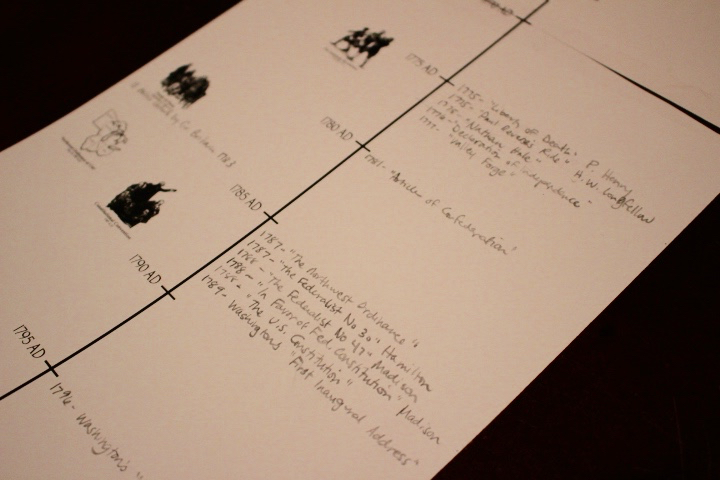 1775 AD
1775- "Liberty or Death" P. Henry
1775- "Paul Revere's Ride" H.W. Longfellow
1776- "Nathan Hale"
1776- "Declaration of Independence"
1777- "Valley Forge"
1780 AD
1781- "Articles of Confederation"
1783
1785 AD
1787- "The Northwest Ordinance"
1787- "The Federalist No 30" Hamilton
1788- "The Federalist No 47" Madison
1788- "In Favor of Fed. Constitution" Madison
1788- "The U.S. Constitution"
1789- Washington's "First Inaugural Address"
1790 AD
1795 AD
1796- Washington's "